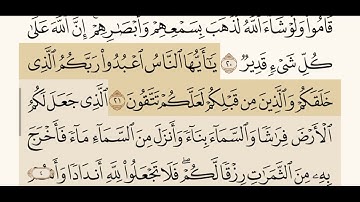 قَامُوا۟ وَلَوْ شَآءَ ٱللَّهُ لَذَهَبَ بِسَمْعِهِمْ وَأَبْصَٰرِهِمْ إِنَّ ٱللَّهَ عَلَىٰ
كُلِّ شَىْءٍ قَدِيرٌ ٢٠ يَٰٓأَيُّهَا ٱلنَّاسُ ٱعْبُدُوا۟ رَبَّكُمُ ٱلَّذِى
خَلَقَكُمْ وَٱلَّذِينَ مِن قَبْلِكُمْ لَعَلَّكُمْ تَتَّقُونَ ٢١ ٱلَّذِى جَعَلَ لَكُمُ
ٱلْأَرْضَ فِرَٰشًا وَٱلسَّمَآءَ بِنَآءً وَأَنزَلَ مِنَ ٱلسَّمَآءِ مَآءً فَأَخْرَجَ
بِهِۦ مِنَ ٱلثَّمَرَٰتِ رِزْقًا لَّكُمْ ۖ فَلَا تَجْعَلُوا۟ لِلَّهِ أَندَادًا وَأَنتُمْ